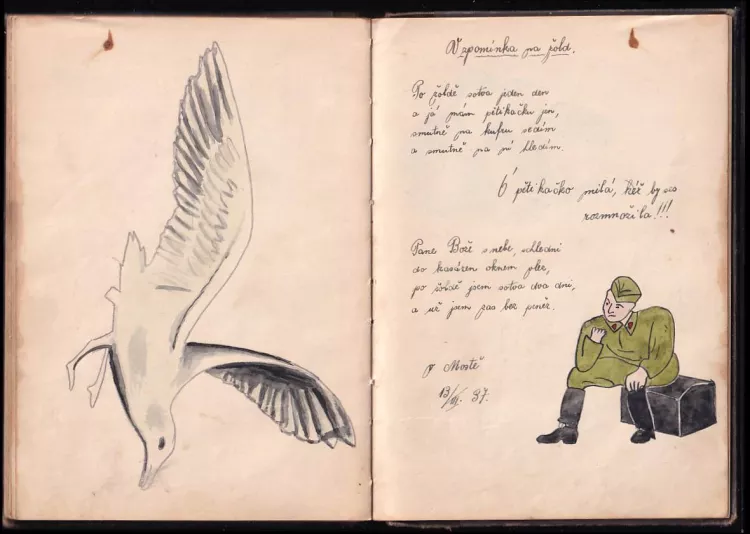 Vzpomínka na žold.
Po žoldě sotva jeden den
a já mám pětikačku jen,
smutně na kufru sedím
a smutně na ní hledím.
Ó pětikačko milá, kéž by ses
rozmnožila!!!
Pane Bože s nebe, shledni
do kasáren oknem
po žoldě jsem sotva dva dni,
a už jsem zas bez peněz.
V Mostě
37.